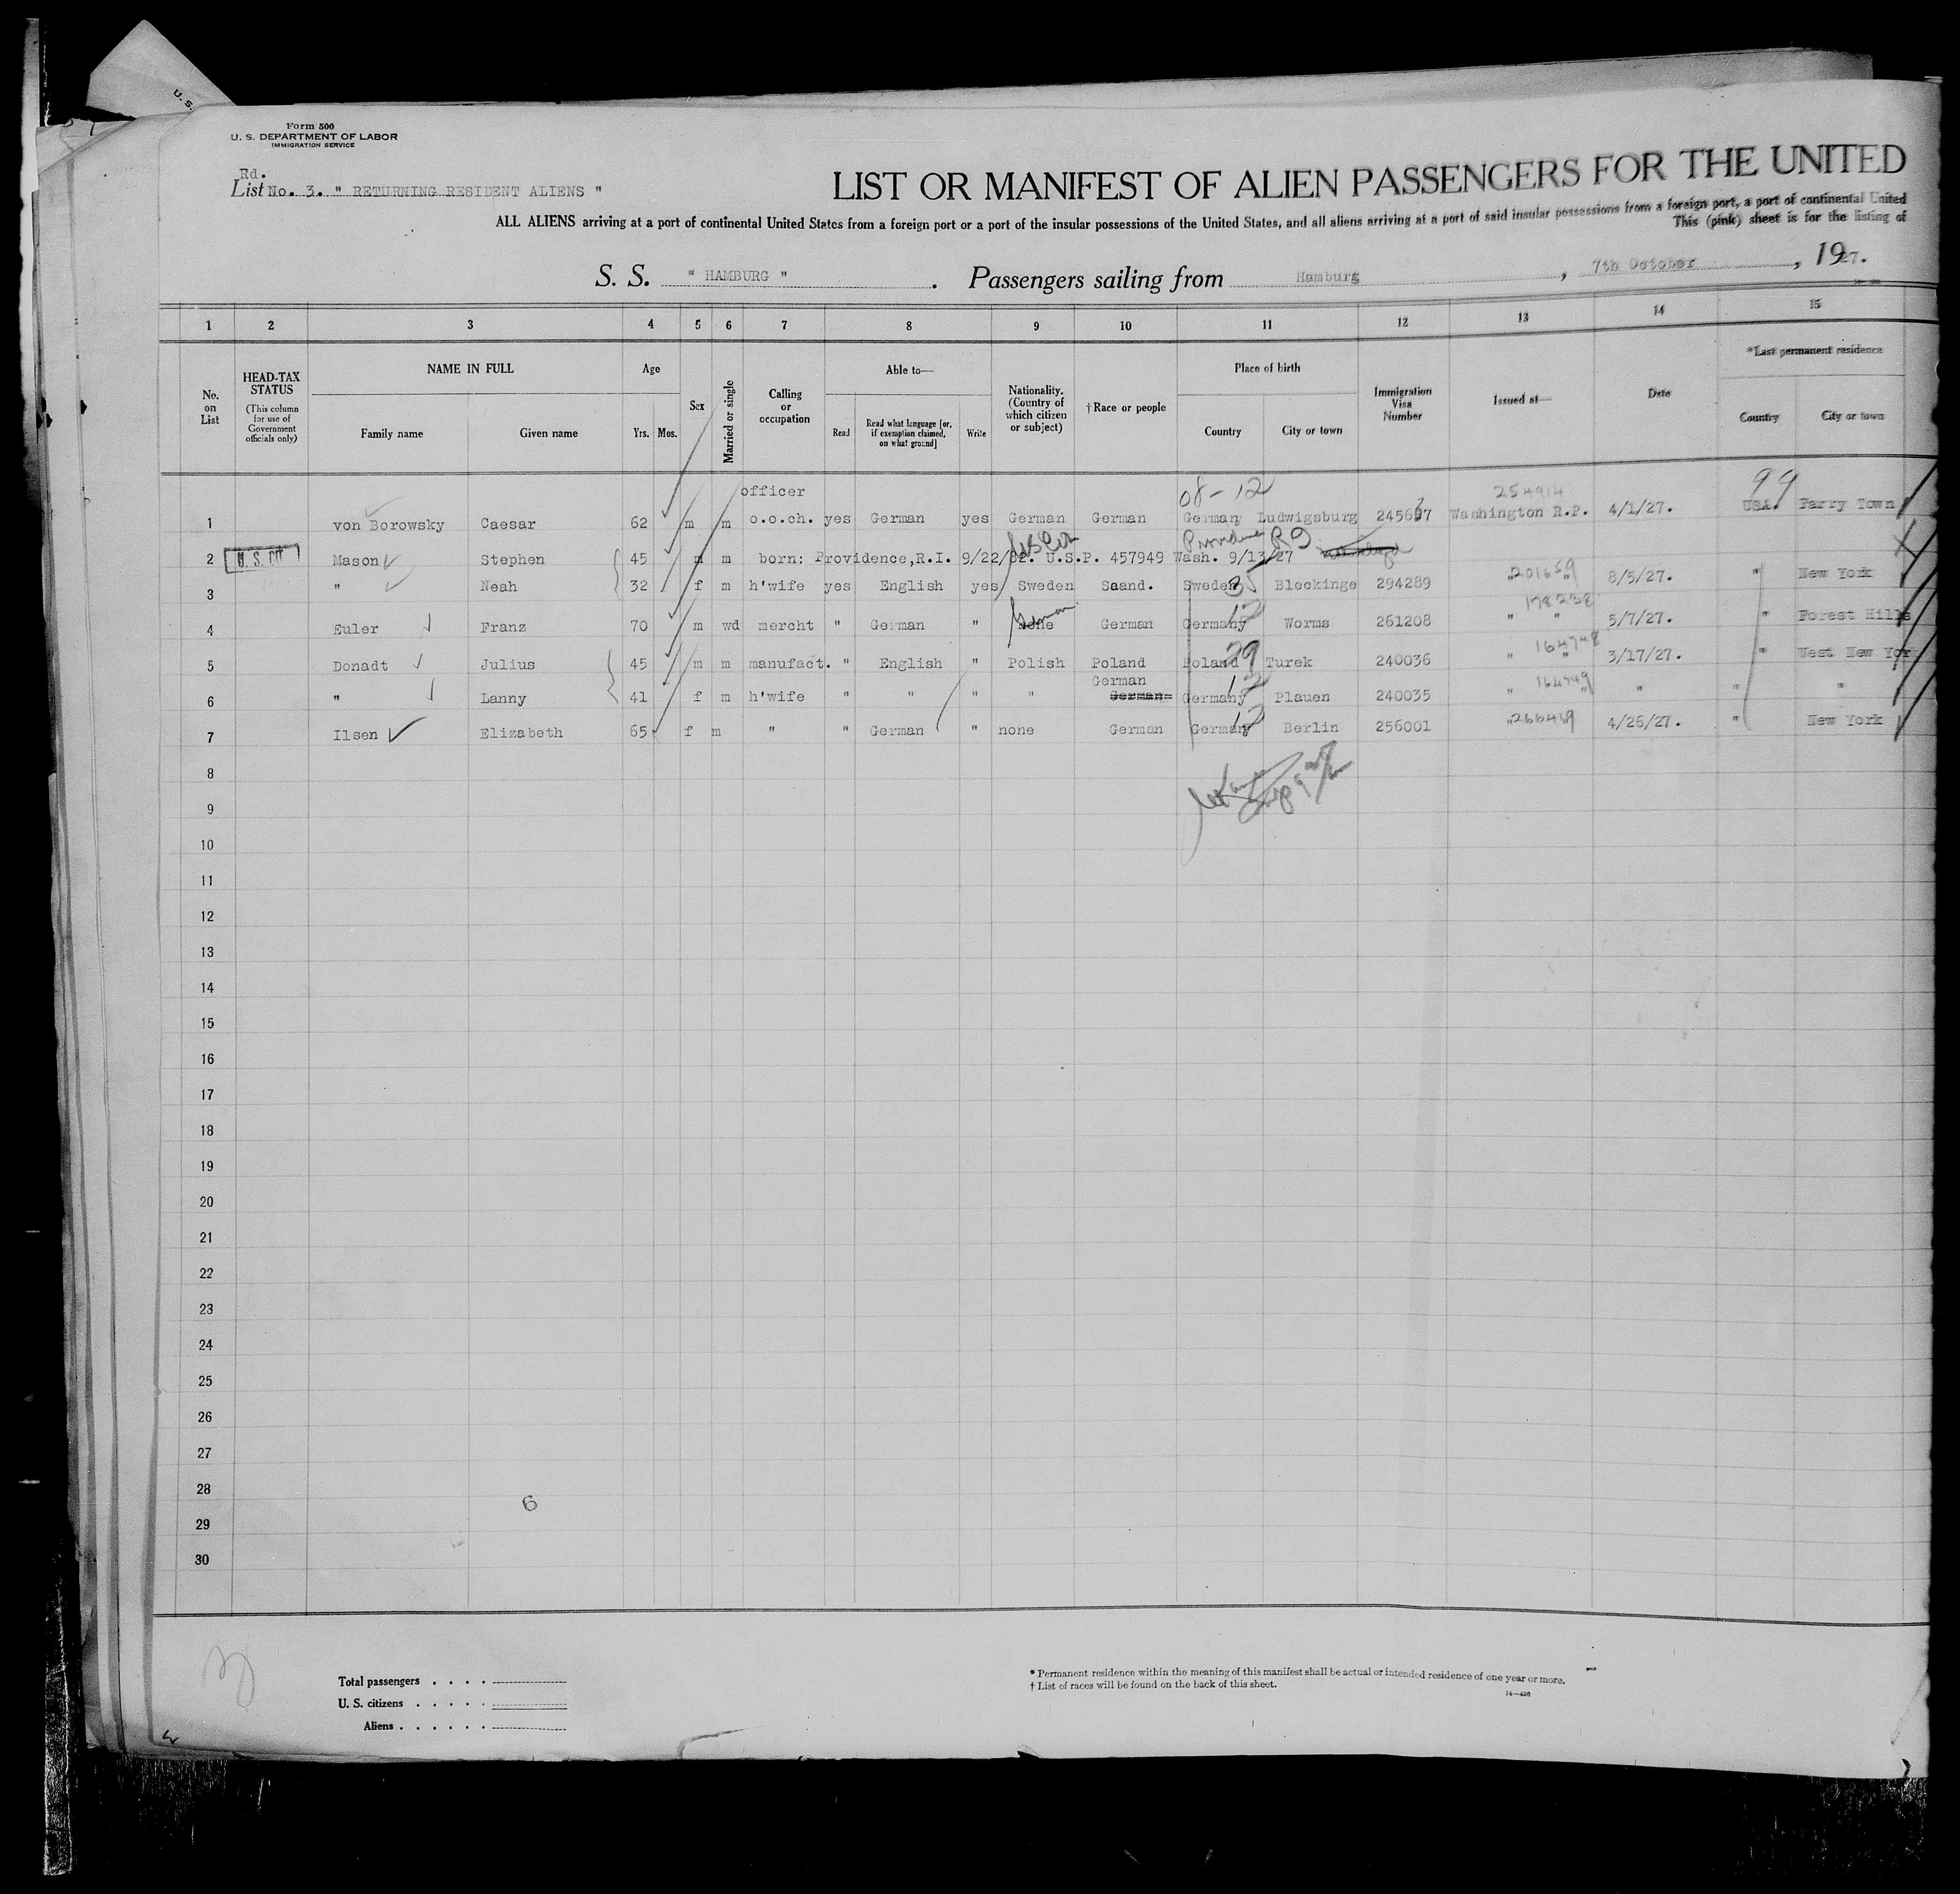 U. S.
Form 500
U. S. DEPARTMENT OF LABOR
IMMIGRATION SERVICE
Rd.
List No. 3. " RETURNING RESIDENT ALIENS "
LIST OR MANIFEST OF ALIEN PASSENGERS FOR THE UNITED
ALL ALIENS arriving at a port of continental United States from a foreign port or a port of the insular possessions of the United States, and all aliens arriving at a port of said insular possessions from a foreign port, a port of continental United
This (pink) sheet is for the listing of
S. S. " HAMBURG " . Passengers sailing from Hamburg , 7th October , 1927.
1 2 3 4 5 6 7 8 9 10 11 12 13 14 15
No. on List
HEAD-TAX STATUS
(This column for use of Government officials only)
NAME IN FULL
Family name Given name
Age
Yrs. Mos.
Sex
Married or single
Calling or occupation
Able to—
Read
Read what language [or, if exemption claimed, on what ground]
Write
Nationality. (Country of which citizen or subject)
† Race or people
Place of birth
Country City or town
Immigration Visa Number
Issued at—
Date
*Last permanent residence
Country City or town
officer 08-12 254914 99
1 von Borowsky Caesar 62 m m o.o.ch. yes German yes German German Germany Ludwigsburg 245697 Washington R.P. 4/1/27. USA. Farry Town
Providence R I
2 U. S. CIT Mason Stephen 45 m m born: Providence,R.I. 9/22/82. U.S.P. 457949 Wash. 9/13/27
3 " Neah 32 f m h'wife yes English yes Sweden Saand. Sweden 35 Bleckinge 294289 " 201659 " 8/5/27. " New York
German 178238
4 Euler Franz 70 m wd mercht " German " none German Germany 12 Worms 261208 " " 5/7/27. " Forest Hills
164748
5 Donadt Julius 45 m m manufact. " English " Polish Poland Poland 29 Turek 240036 " " 3/17/27. " West New Yor
German 164749
6 " Lanny 41 f m h'wife " " " " German= Germany 12 Plauen 240035 " " " " "
7 Ilsen Elizabeth 65 f m " " German " none German Germany 12 Berlin 256001 " 266469 4/26/27. " New York
8
9
10
11
12
13
14
15
16
17
18
19
20
21
22
23
24
25
26
27
28
6
29
30
Total passengers . . . .
U. S. citizens . . . . .
Aliens . . . . . .
* Permanent residence within the meaning of this manifest shall be actual or intended residence of one year or more.
† List of races will be found on the back of this sheet.
14—436